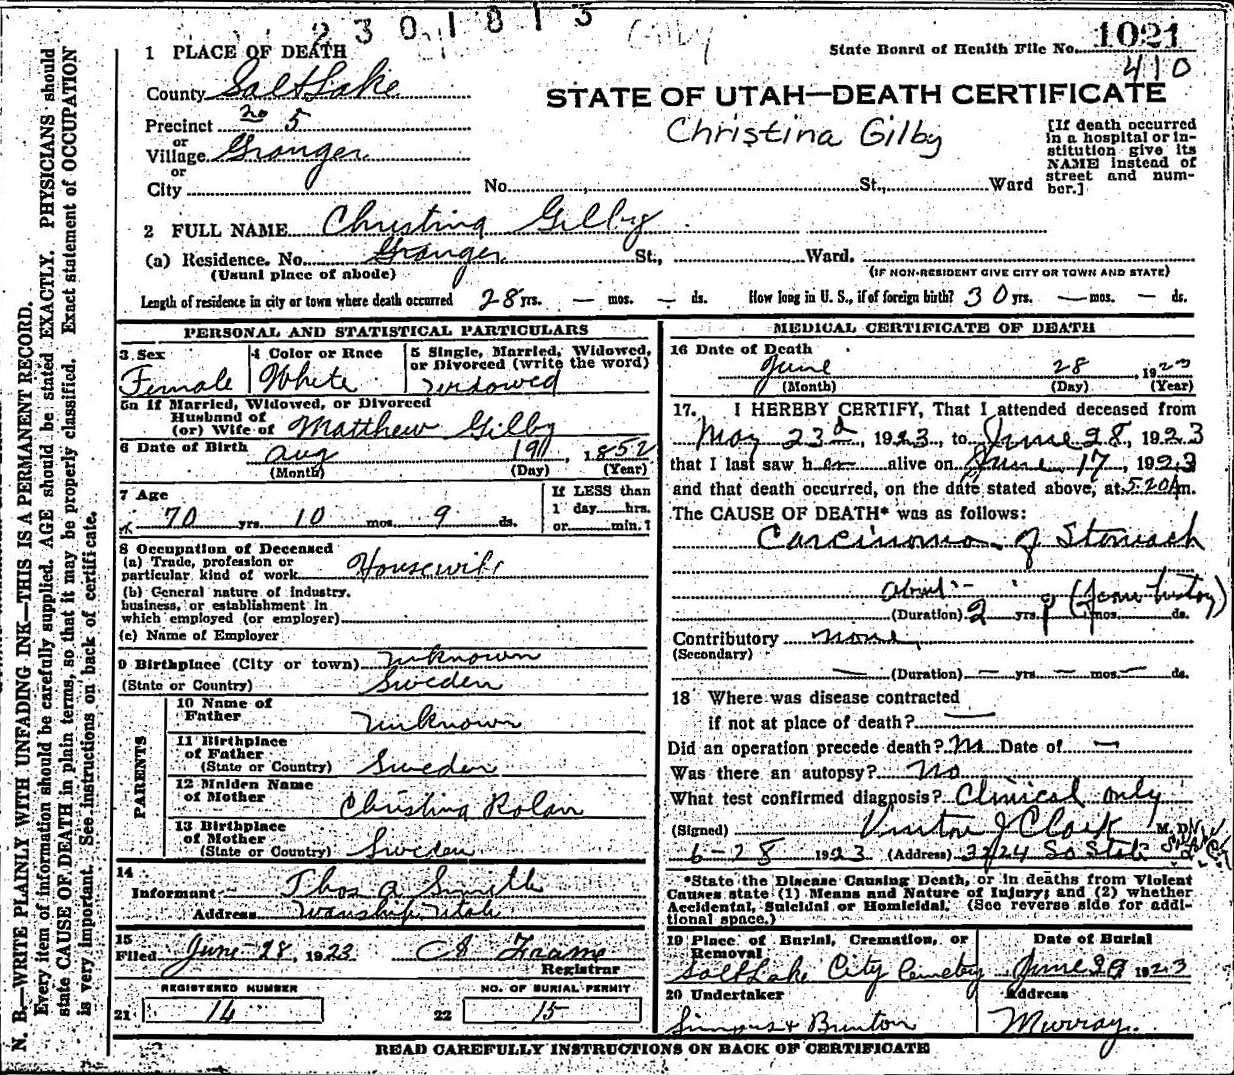 2301813
Gilby
State Board of Health File No. 1021
410
1 PLACE OF DEATH
County Salt Lake
STATE OF UTAH—DEATH CERTIFICATE
Precinct no 5
Christina Gilby
or
Village Granger
or
City No. , St., Ward
[If death occurred
in a hospital or in-
stitution give its
NAME instead of
street and num-
ber.]
2 FULL NAME Christina Gilby
(a) Residence. No. Granger St., Ward.
(Usual place of abode) (IF NON-RESIDENT GIVE CITY OR TOWN AND STATE)
Length of residence in city or town where death occurred 28 yrs. — mos. — ds. How long in U. S., if of foreign birth? 30 yrs. — mos. — ds.
PERSONAL AND STATISTICAL PARTICULARS
3 Sex
Female
4 Color or Race
White
5 Single, Married, Widowed,
or Divorced (write the word)
Widowed
5a If Married, Widowed, or Divorced
Husband of
(or) Wife of Matthew Gilby
6 Date of Birth Aug 19 , 1852
(Month) (Day) (Year)
7 Age
70 yrs. 10 mos. 9 ds.
If LESS than
1 day hrs.
or min.?
8 Occupation of Deceased
(a) Trade, profession or
particular kind of work Housewife
(b) General nature of industry,
business, or establishment in
which employed (or employer)
(c) Name of Employer
9 Birthplace (City or town) unknown
(State or Country) Sweden
PARENTS
10 Name of
Father unknown
11 Birthplace
of Father
(State or Country) Sweden
12 Maiden Name
of Mother Christina Rolan
13 Birthplace
of Mother
(State or Country) Sweden
14
Informant Thos A Smith
Address Wanship Utah
15
Filed June 28, 1923 C S Frame
Registrar
REGISTERED NUMBER
21 14
NO. OF BURIAL PERMIT
22 15
MEDICAL CERTIFICATE OF DEATH
16 Date of Death
June 28 , 1923
(Month) (Day) (Year)
17. I HEREBY CERTIFY, That I attended deceased from
May 23d, 1923, to June 28, 1923
that I last saw her alive on June 17, 1923
and that death occurred, on the date stated above, at 5 20 A m.
The CAUSE OF DEATH* was as follows:
Carcinoma of Stomach
about
(Duration) 2 yrs. mos. ds.
Contributory none
(Secondary)
— (Duration) — yrs. — mos. — ds.
18 Where was disease contracted
if not at place of death? —
Did an operation precede death? no Date of —
Was there an autopsy? No
What test confirmed diagnosis? Clinical only
(Signed) J Clark M. D.
6-28 1923 (Address) So State
*State the Disease Causing Death, or in deaths from Violent
Causes state (1) Means and Nature of Injury; and (2) whether
Accidental, Suicidal or Homicidal. (See reverse side for addi-
tional space.)
19 Place of Burial, Cremation, or
Removal
Salt Lake City Cemetery
Date of Burial
June 29 1923
20 Undertaker
Address
Murray
READ CAREFULLY INSTRUCTIONS ON BACK OF CERTIFICATE
N. B.—WRITE PLAINLY WITH UNFADING INK—THIS IS A PERMANENT RECORD.
Every item of information should be carefully supplied. AGE should be stated EXACTLY. PHYSICIANS should
state CAUSE OF DEATH in plain terms, so that it may be properly classified. Exact statement of OCCUPATION
is very important. See instructions on back of certificate.